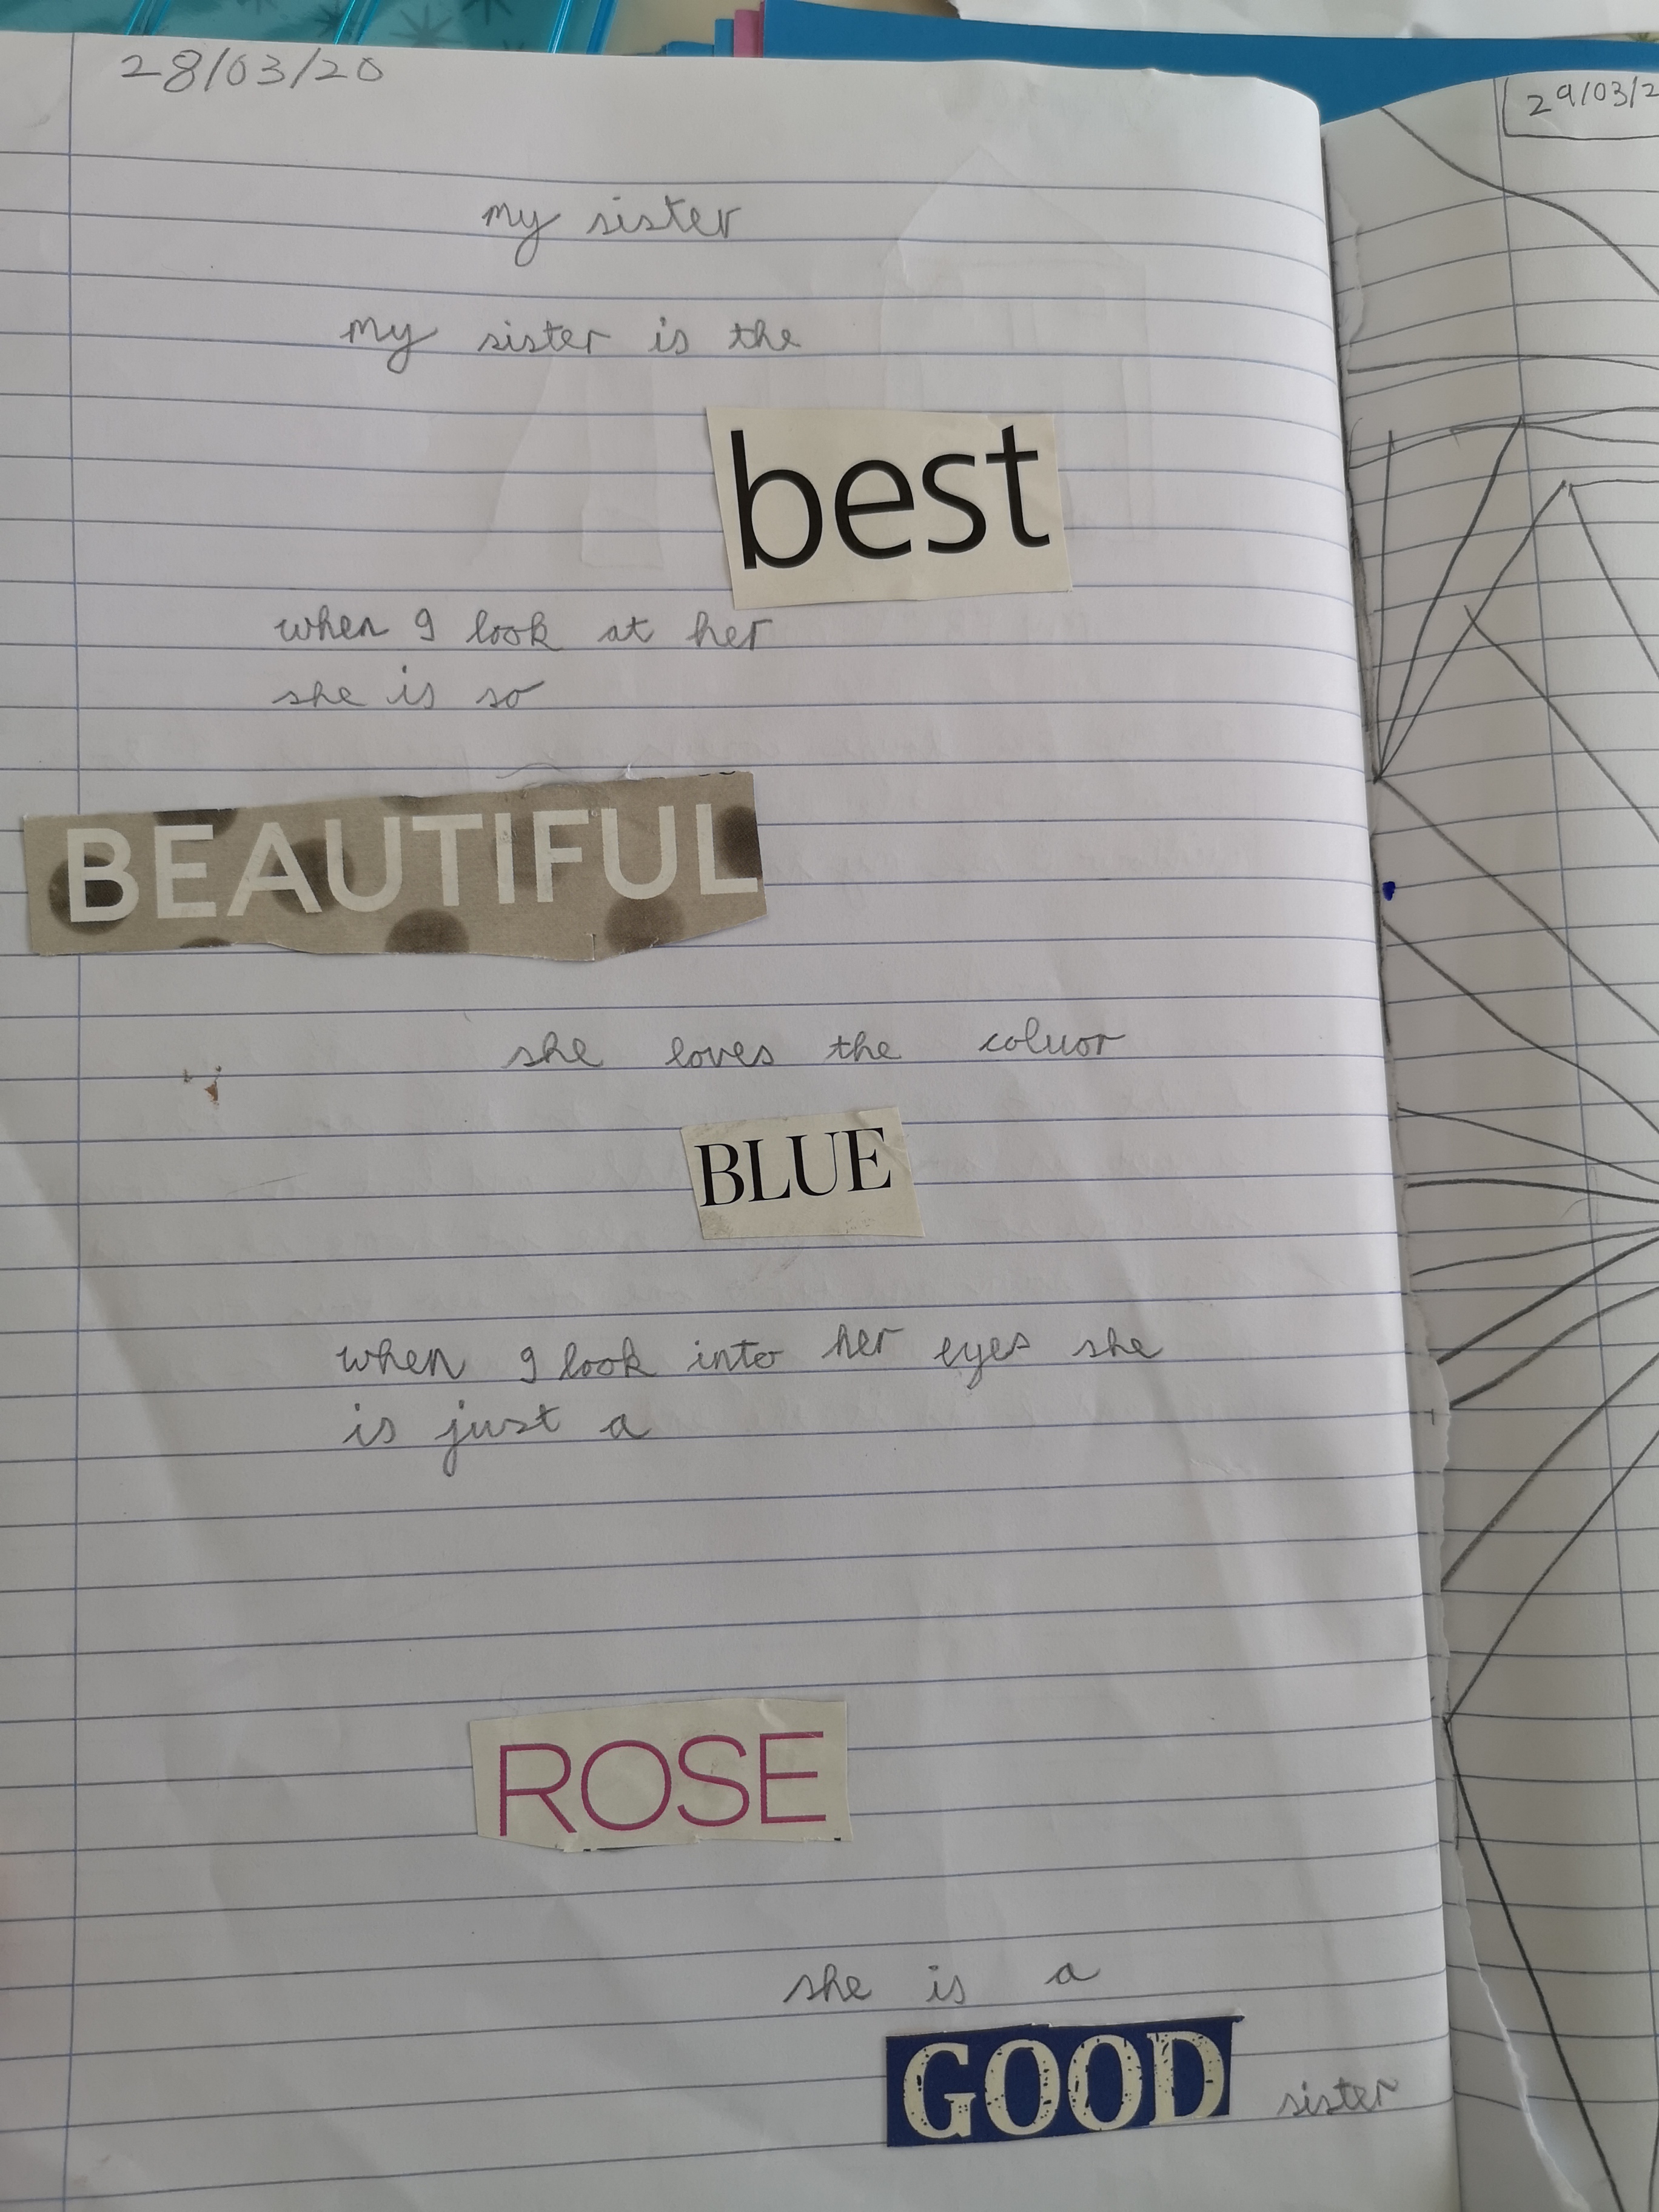 28/03/20
my sister
my sister is the
best
when I look at her
she is so
BEAUTIFUL
she loves the coluor
BLUE
when I look into her eyes she
is just a
ROSE
she is a
GOOD sister
29/03/2